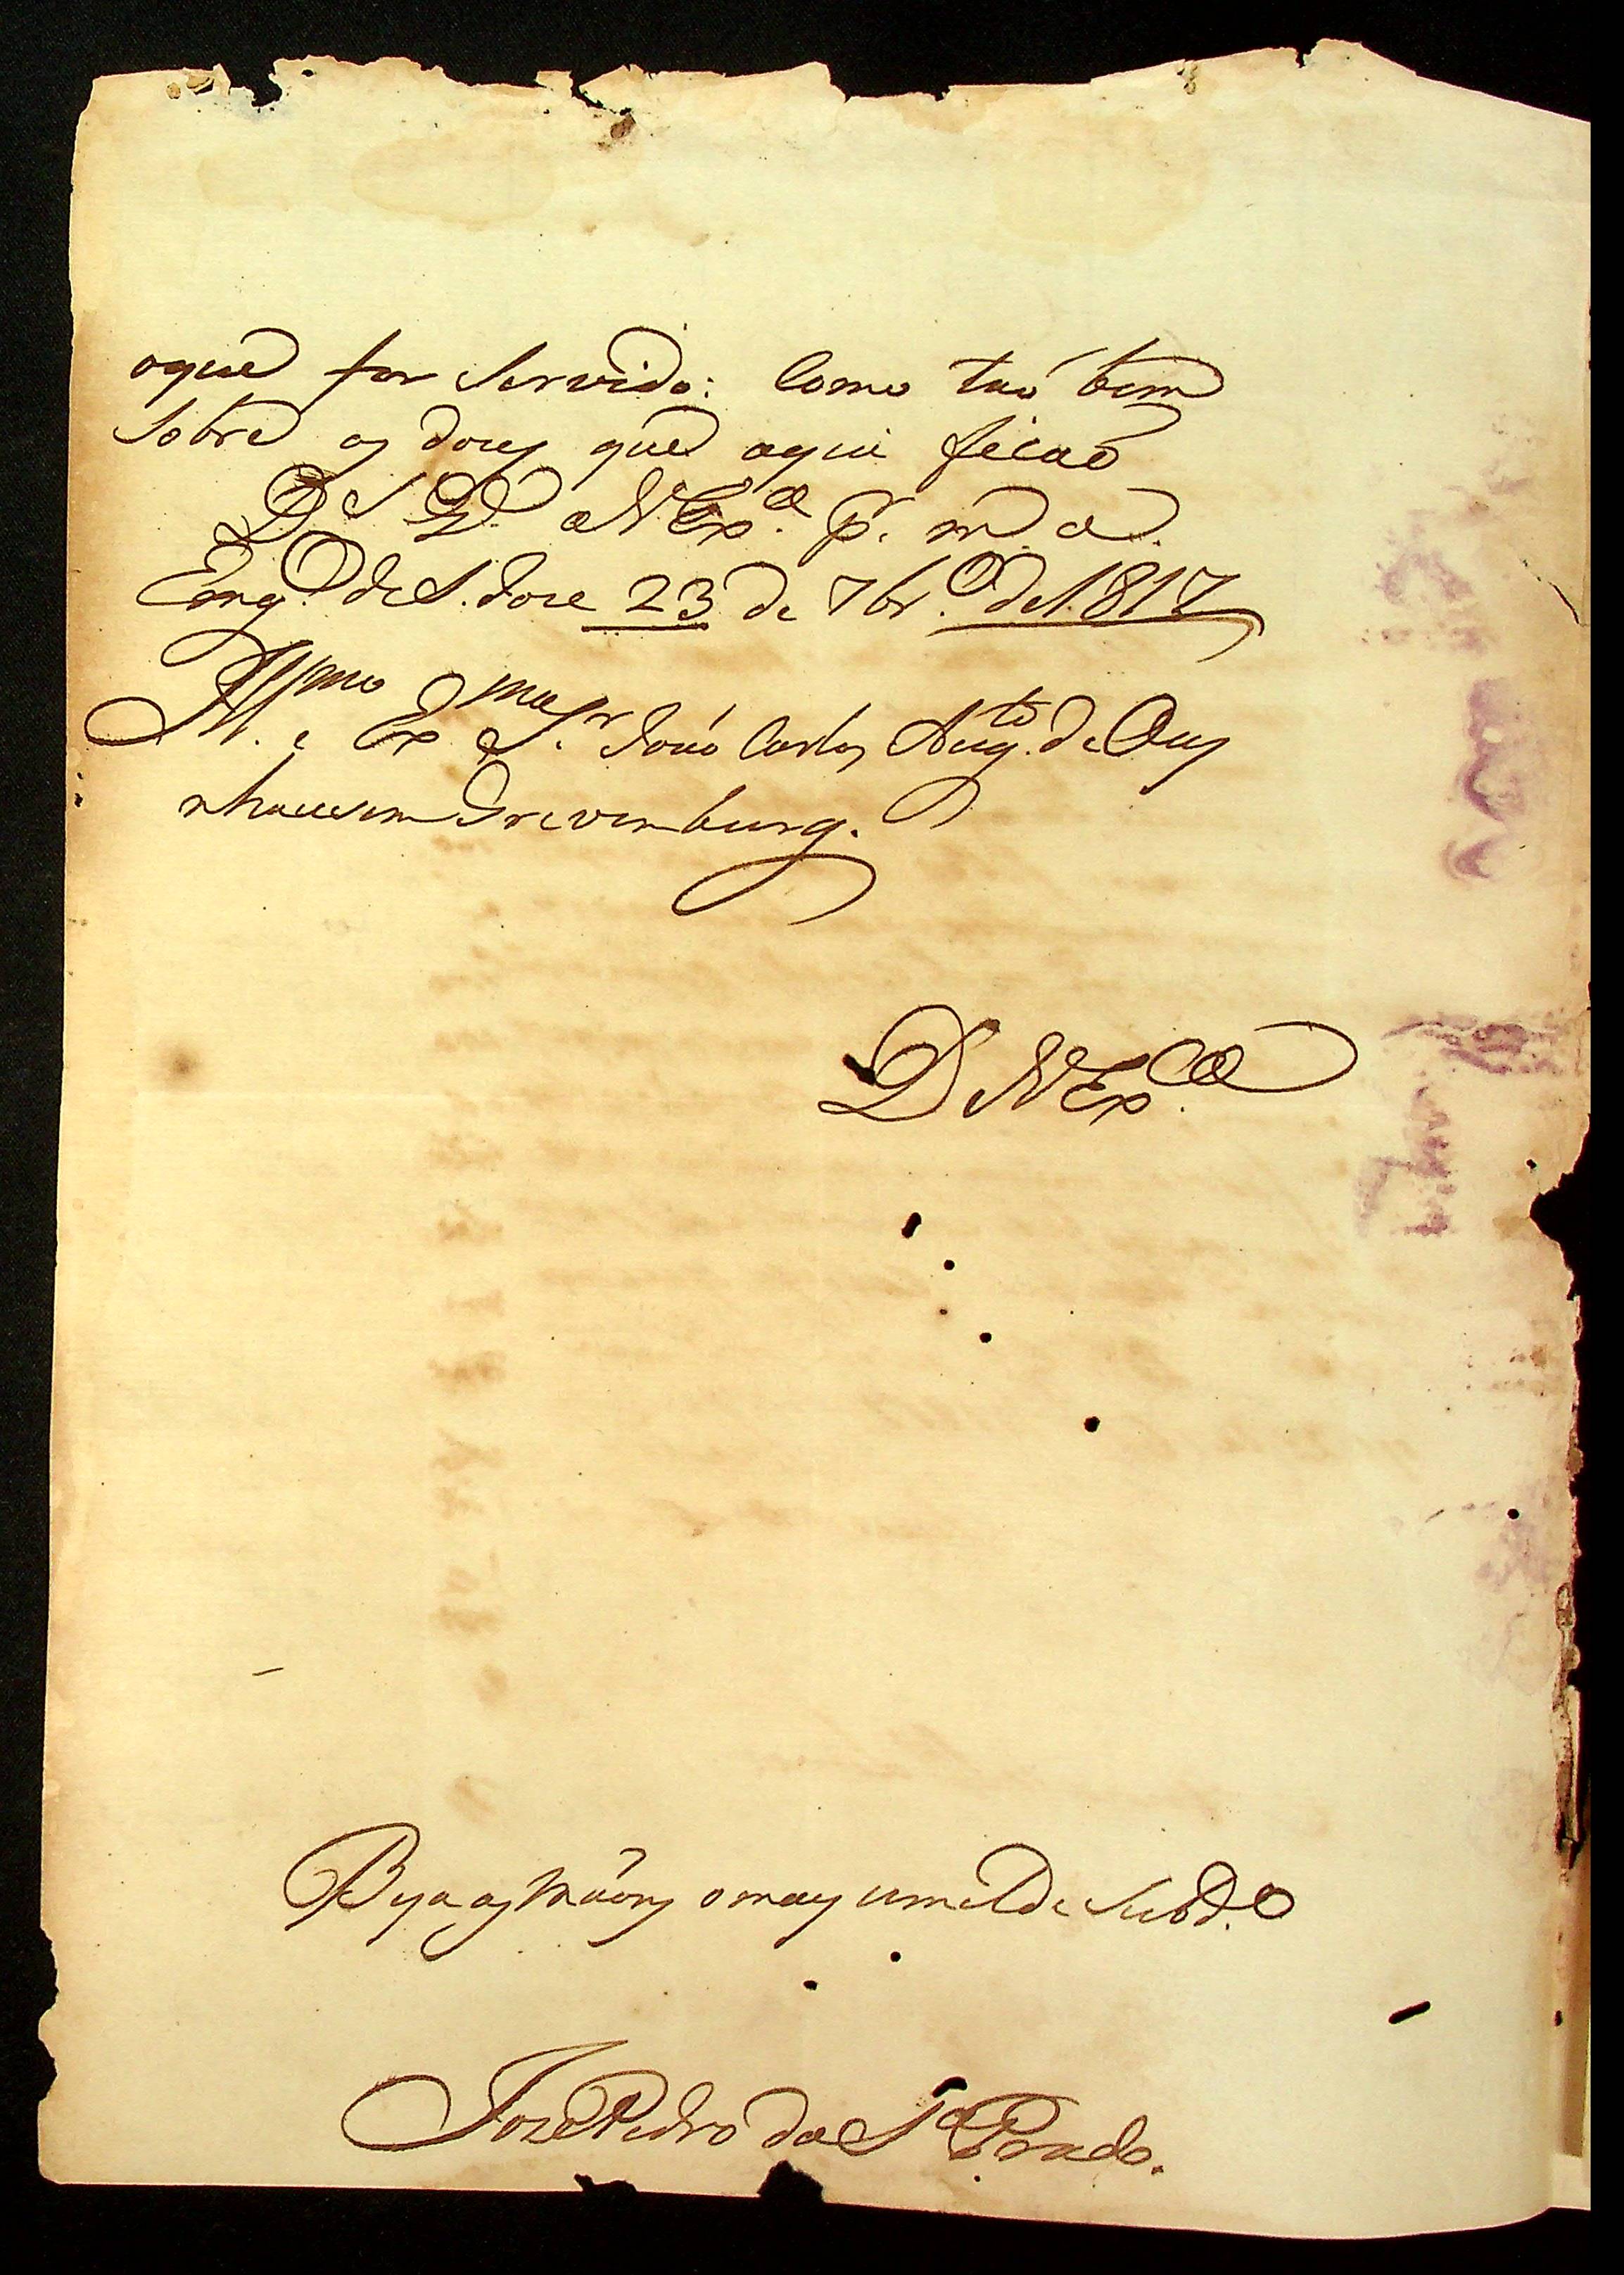 oque for Servido: Como taó bem
Sobre os doey que aqui ficaõ
D.s G.e a V Ex.ca p.r m. a.
Eng.o de S. Jose 23 de 7br.o de 1817
Ill.mo e Ex.mo S.r Joaó Carlos Aug.to de Oey
nhausem Grevemburg.
D V Ex.ca
Beja as Maons o mais umilde Subd.o
Joze Pedro da S.a Prado.